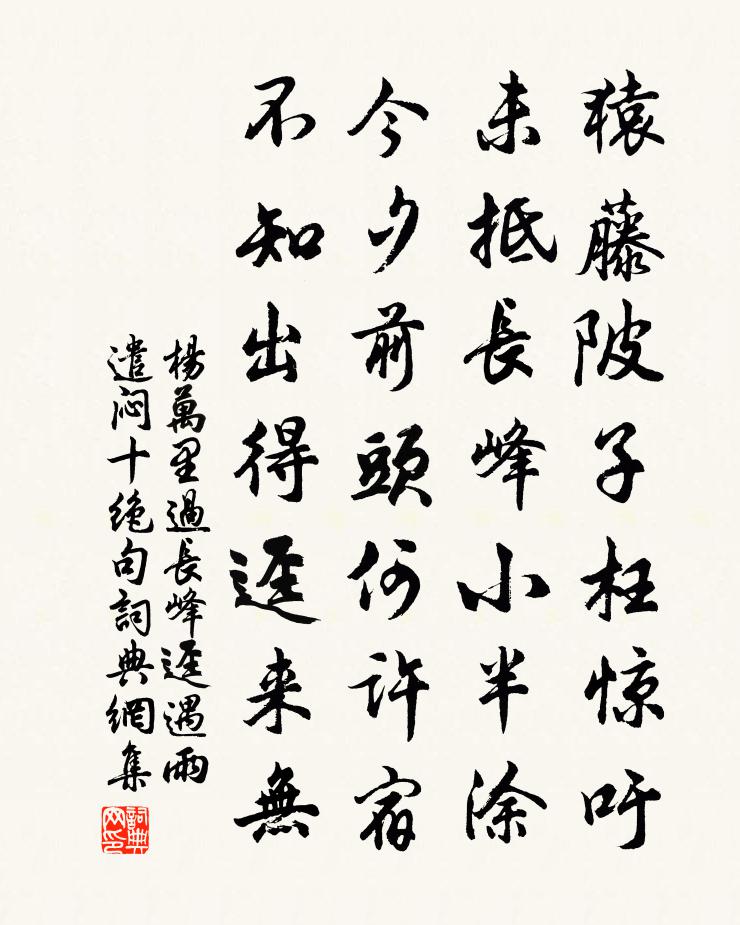 猿藤陂子枉惊吁
未抵長峰小半涂
今夕前頭何許宿
不知出得逕来無
楊萬里過長峰逕遇雨
遣闷十绝句詞典網集
詞典网印